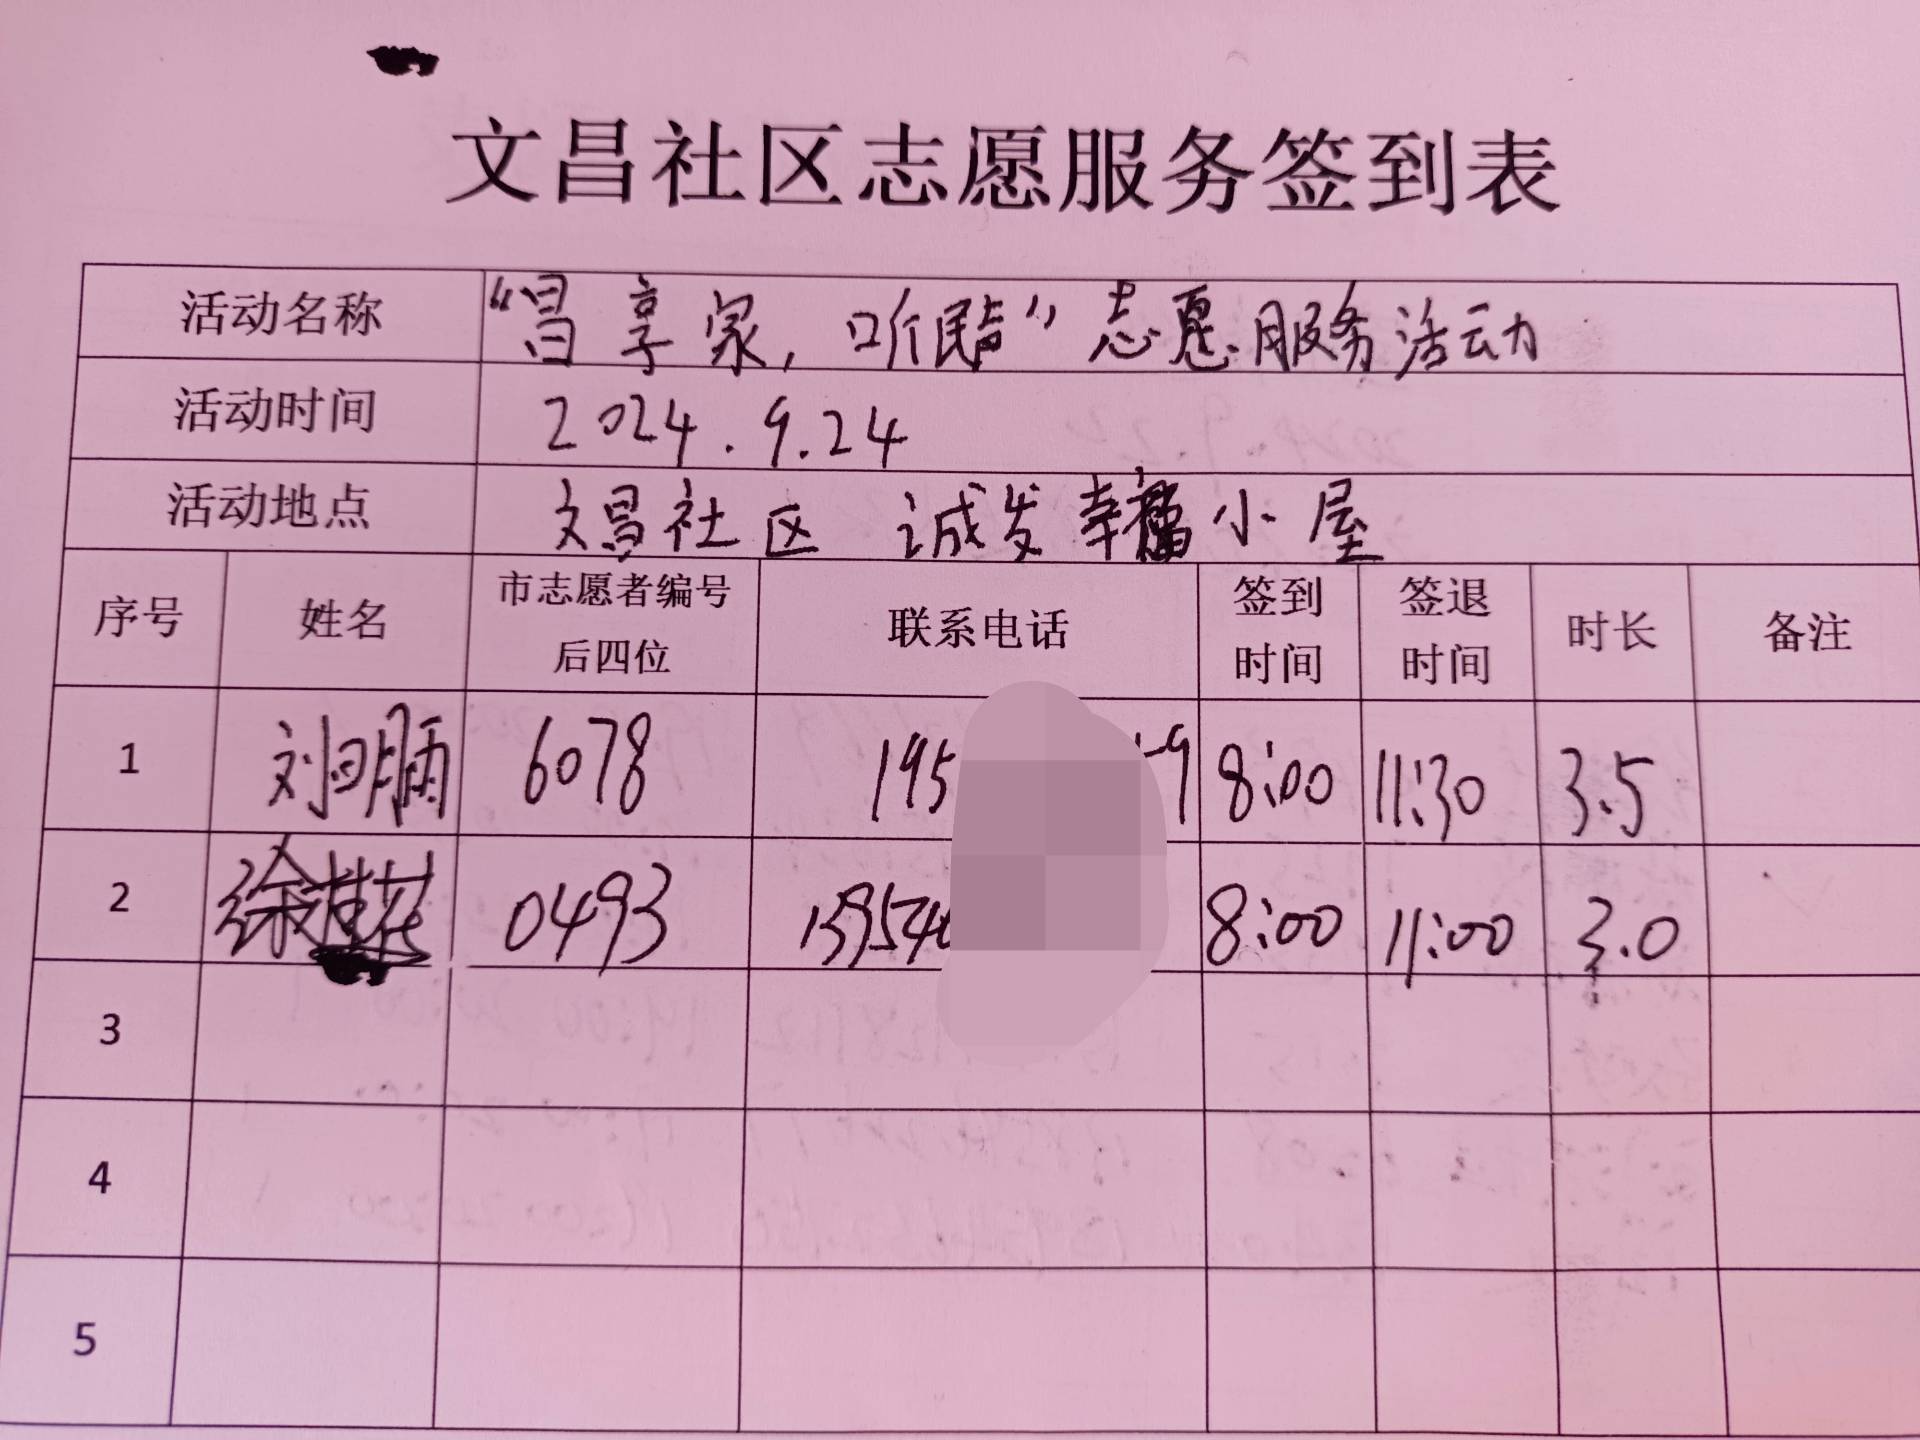 文昌社区志愿服务签到表
活动名称 “昌享家，听民声”志愿服务活动
活动时间 2024.9.24
活动地点 文昌社区 诚发幸福小屋
序号 姓名 市志愿者编号后四位 联系电话 签到时间 签退时间 时长 备注
1 刘 6078 195 9 8:00 11:30 3.5
2 徐 0493 139540 8:00 11:00 3.0
3
4
5